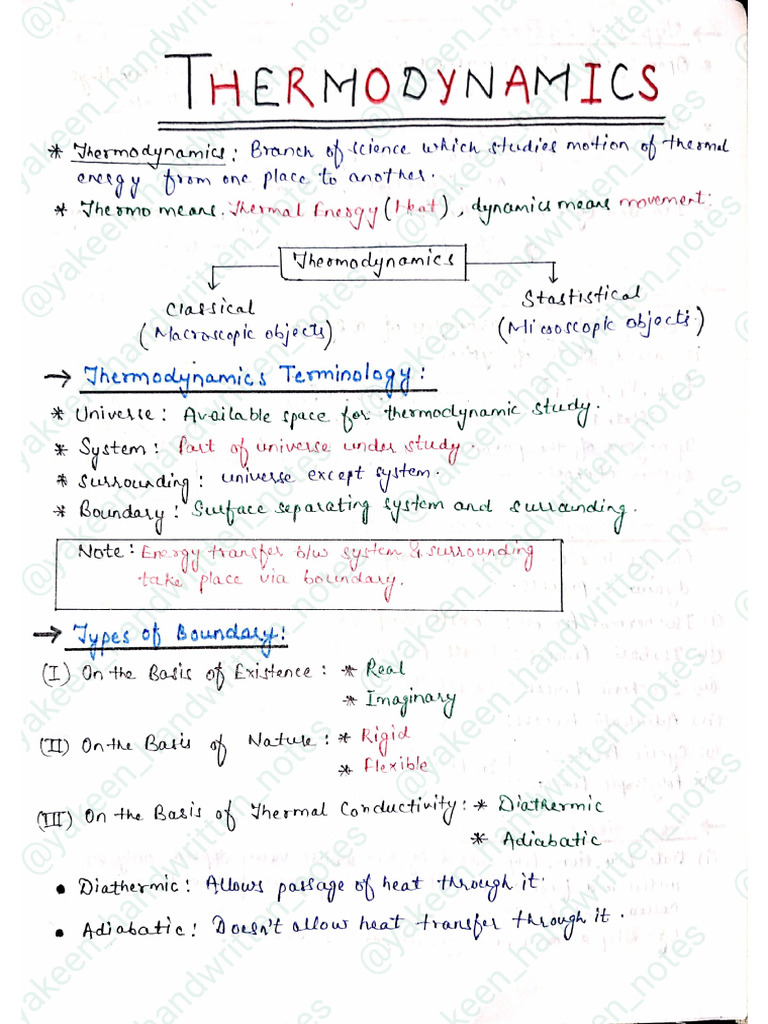 THERMODYNAMICS
* Thermodynamics: Branch of science which studies motion of thermal
energy from one place to another.
* Thermo means Thermal Energy (Heat), dynamics means movement.
Thermodynamics
Classical
(Macroscopic objects)
Stastistical
(Microscopic objects)
→ Thermodynamics Terminology:
* Universe: Available space for thermodynamic study.
* System: Part of universe under study.
* Surrounding: universe except system.
* Boundary: Surface separating system and surrounding.
Note: Energy transfer b/w system & surrounding
take place via boundary.
→ Types of Boundary:
(I) On the Basis of Existence: * Real
* Imaginary
(II) On the Basis of Nature: * Rigid
* Flexible
(III) On the Basis of Thermal Conductivity: * Diathermic
* Adiabatic
• Diathermic: Allows passage of heat through it.
• Adiabatic: Doesn't allow heat transfer through it.
@yakeen_handwritten_notes